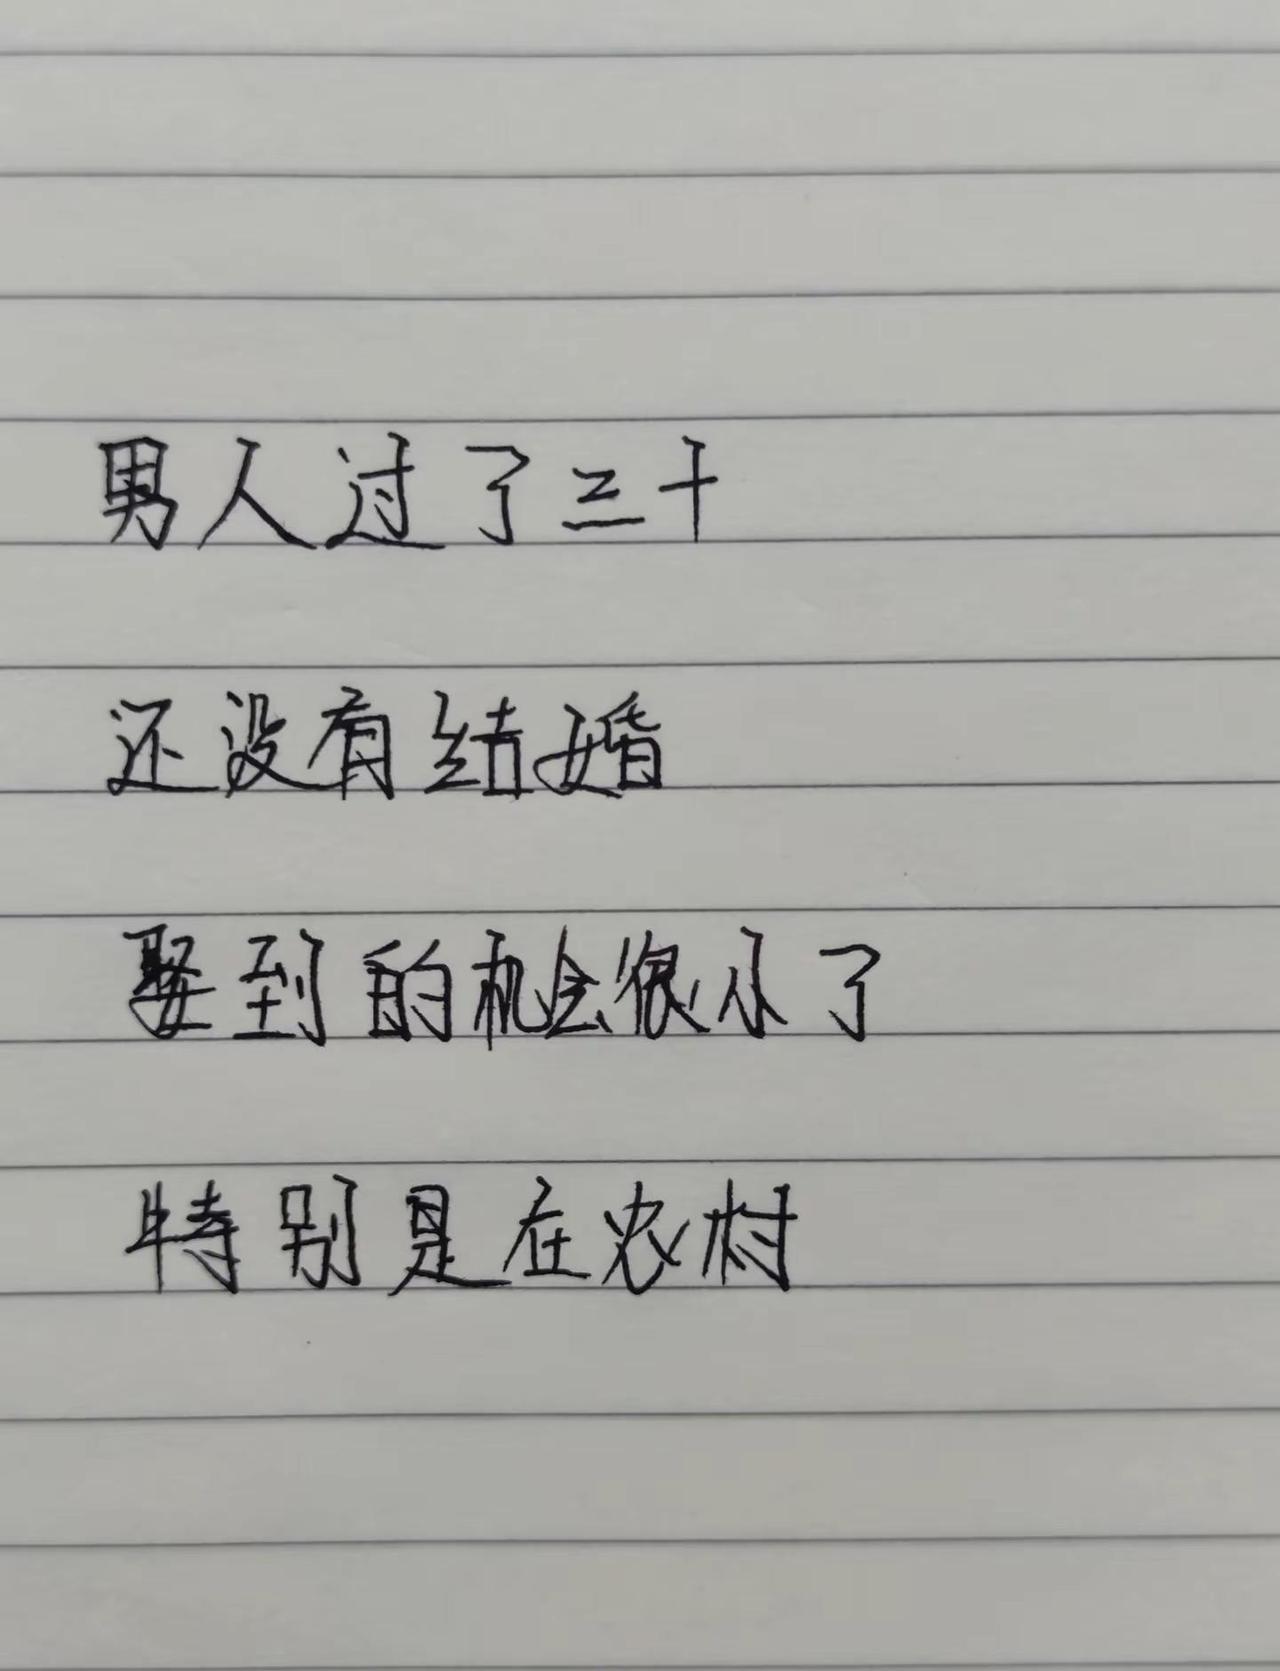 男人过了三十
还没有结婚
娶到的机会很小了
特别是在农村